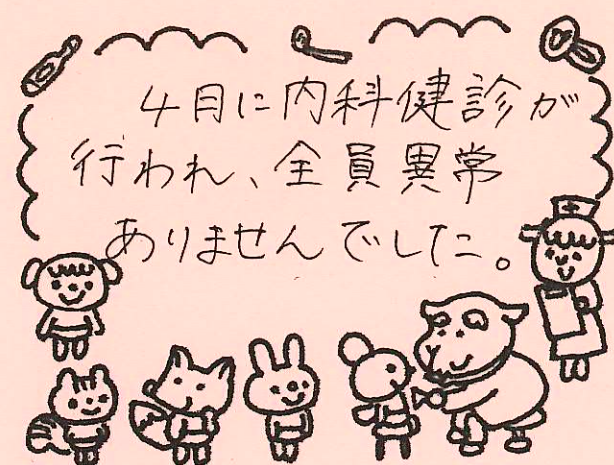 4月に内科健診が
行われ、全員異常
ありませんでした。